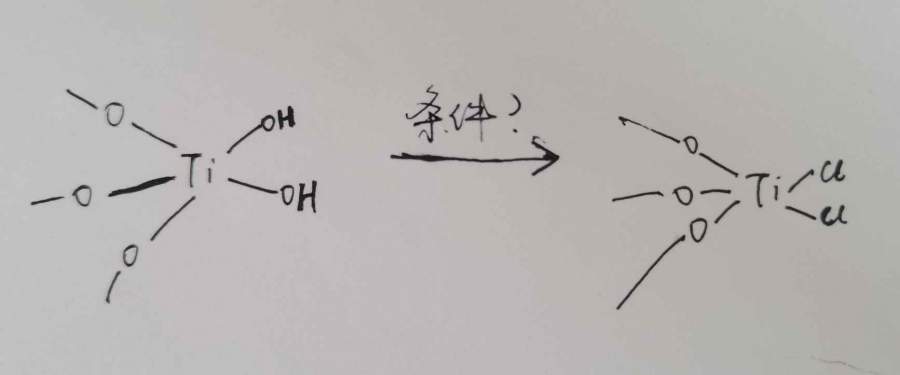 条件?
O Ti OH O Cl
O OH O Ti Cl
O O